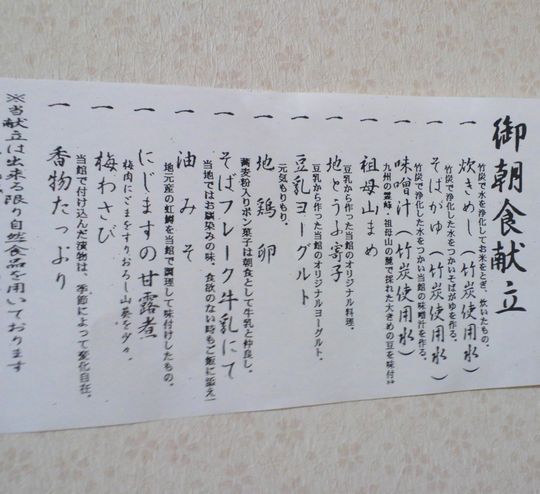 御朝食献立
一 炊きめし(竹炭使用水)
竹炭で水を浄化してお米をとぎ、炊いたもの。
一 そばがゆ(竹炭使用水)
竹炭で浄化した水をつかいそばがゆを作る。
一 味噌汁(竹炭使用水)
竹炭で浄化した水をつかい当館の味噌汁を作る。
一 祖母山まめ
九州の霊峰・祖母山の麓で採れた大きめの豆を味付け
一 地とうふ寄子
豆乳から作った当館のオリジナル料理。
一 豆乳ヨーグルト
豆乳から作った当館のオリジナルヨーグルト。
元気もりもり。
一 地鶏卵
一 そばフレーク牛乳にて
蕎麦粉入りポン菓子は朝食として牛乳と仲良し。
当地ではお馴染みの味。食欲のない時もご飯に添え
一 油みそ
一 にじますの甘露煮
地元産の虹鱒を当館で調理して味付けしたもの。
一 梅わさび
梅肉にごまをすりおろし山葵を少々。
一 香物たっぷり
当館で付け込んだ漬物は、季節によって変化自在。
※当献立は出来る限り自然食品を用いております